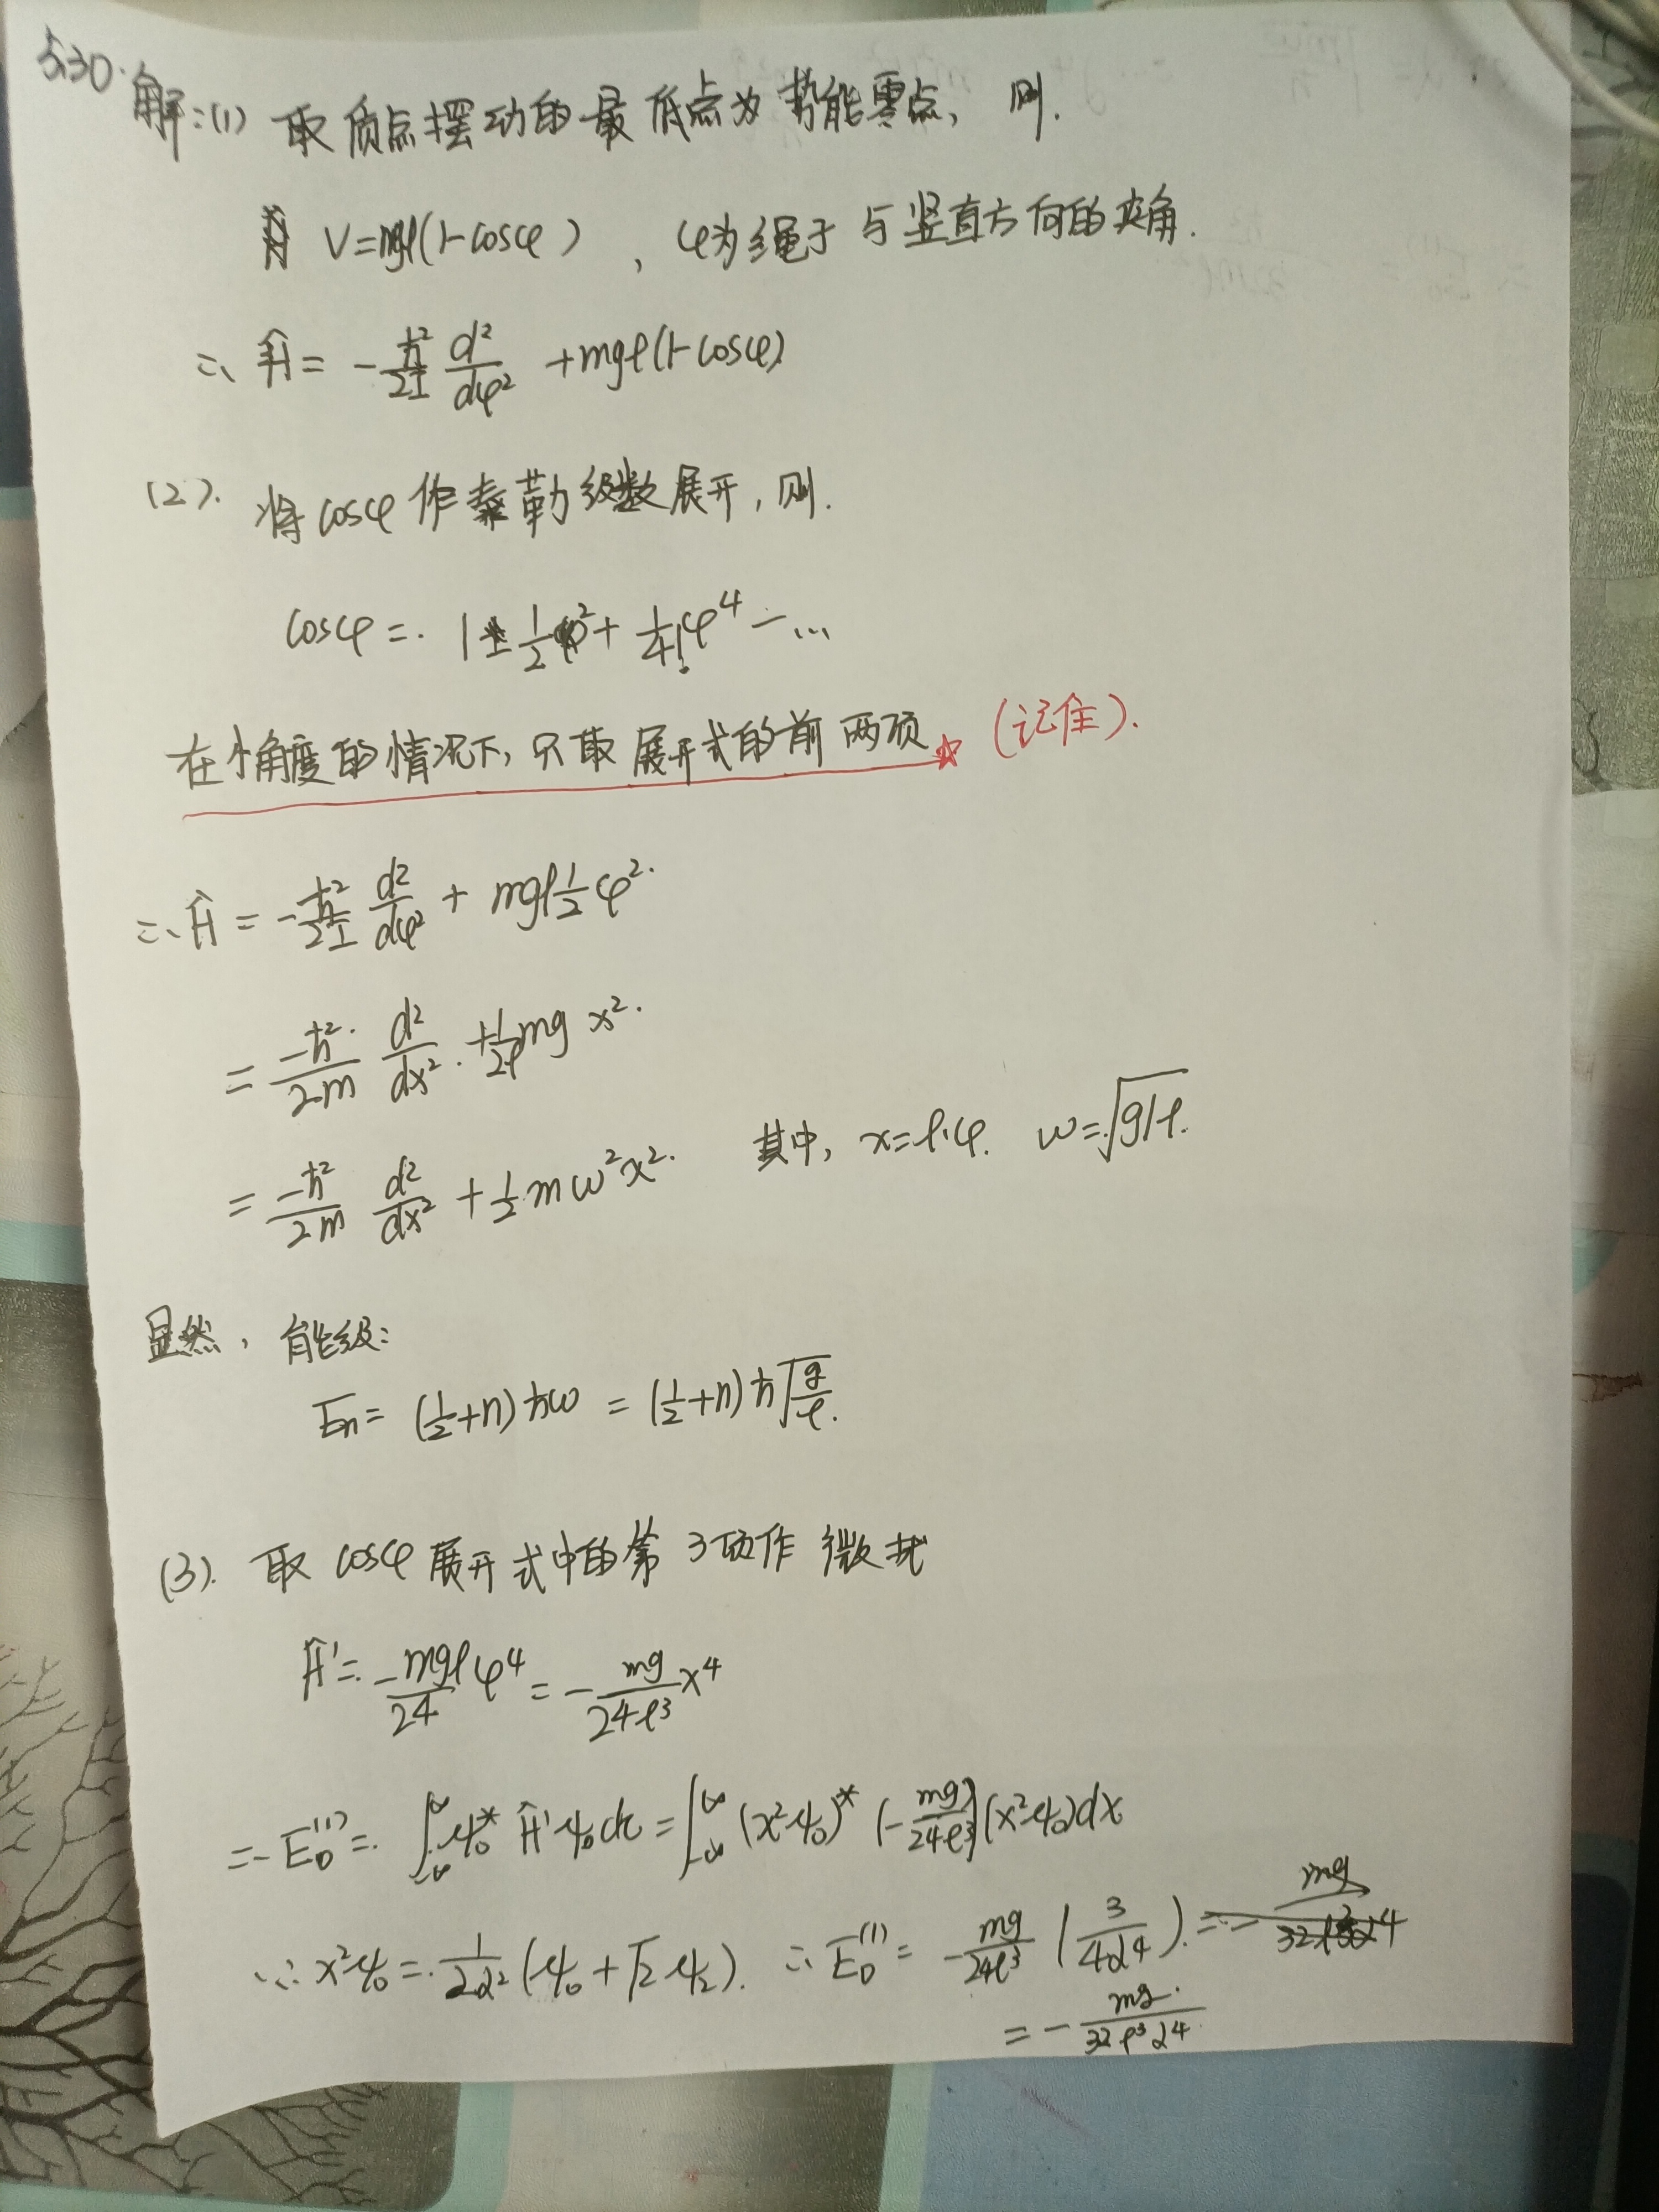 5.30. 解:(1) 取质点摆动的最低点为势能零点, 则.
V=mgl(1-cosφ) , φ为绳子与竖直方向的夹角.
∴ Ĥ = -ħ²/2I d²/dφ² + mgl(1-cosφ)
(2). 将cosφ作泰勒级数展开, 则.
cosφ = 1 - 1/2 φ² + 1/4! φ⁴ - ...
在小角度的情况下, 只取展开式的前两项 ☆ (记住).
∴ Ĥ = -ħ²/2I d²/dφ² + mgl 1/2 φ².
= -ħ²/2m d²/dx² + 1/2l mg x².
= -ħ²/2m d²/dx² + 1/2 mω²x². 其中, x=l·φ. ω=√g/l.
显然, 能级:
En = (1/2+n)ħω = (1/2+n)ħ√g/l.
(3). 取cosφ展开式中的第3项作微扰
Ĥ' = -mgl/24 φ⁴ = -mg/24l³ x⁴
∴ E₀⁽¹⁾ = ∫_{-∞}^{∞} ψ₀* Ĥ' ψ₀ dx = ∫_{-∞}^{∞} (x²ψ₀)* (-mg/24l³)(x²ψ₀)dx
∵ x²ψ₀ = 1/2α² (ψ₀ + √2 ψ₂). ∴ E₀⁽¹⁾ = -mg/24l³ (3/4α⁴).
= -mg/32l³α⁴